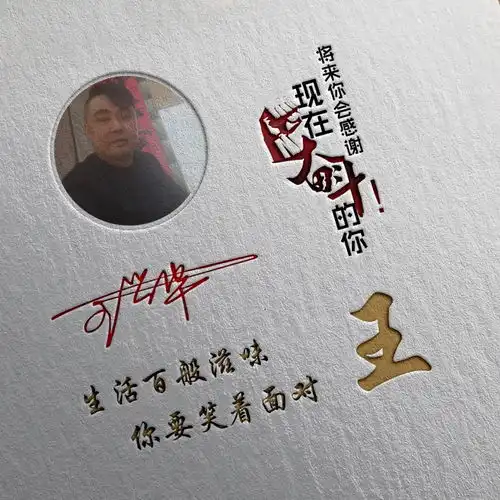 将来你会感谢
现在奋斗!
的你
王
生活百般滋味
你要笑着面对